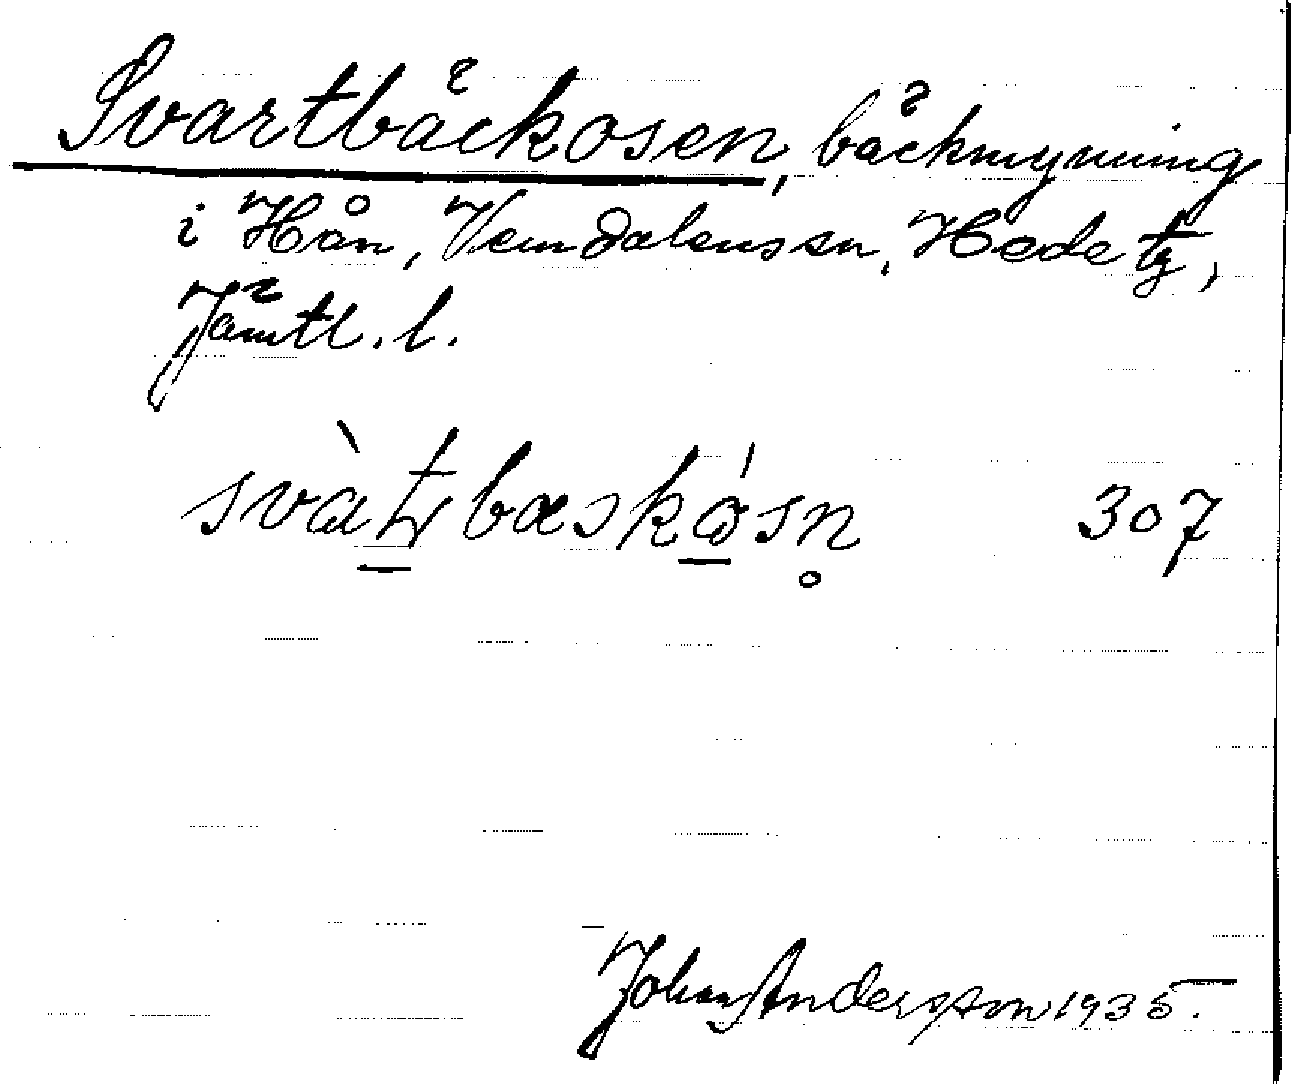 Svartbäckosen, bäckmynning
i Hån, Vemdalens sn, Hede tg,
Jämtl. l.
307
Johan Andersson 1935.